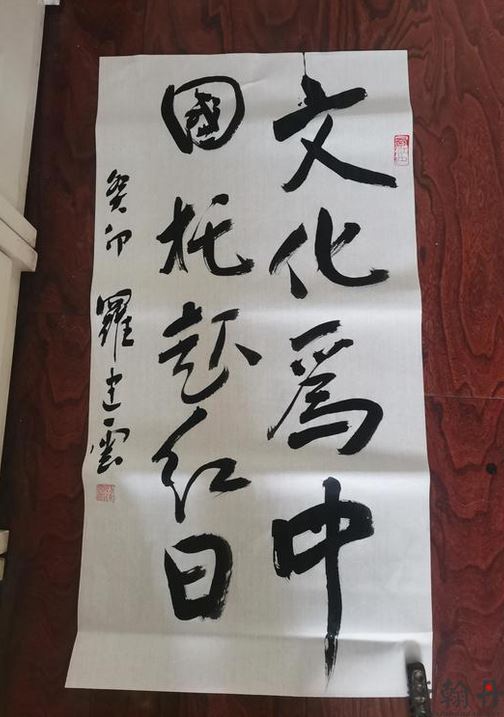 文化為中
國托起紅日
癸卯 羅建雲
翰丹